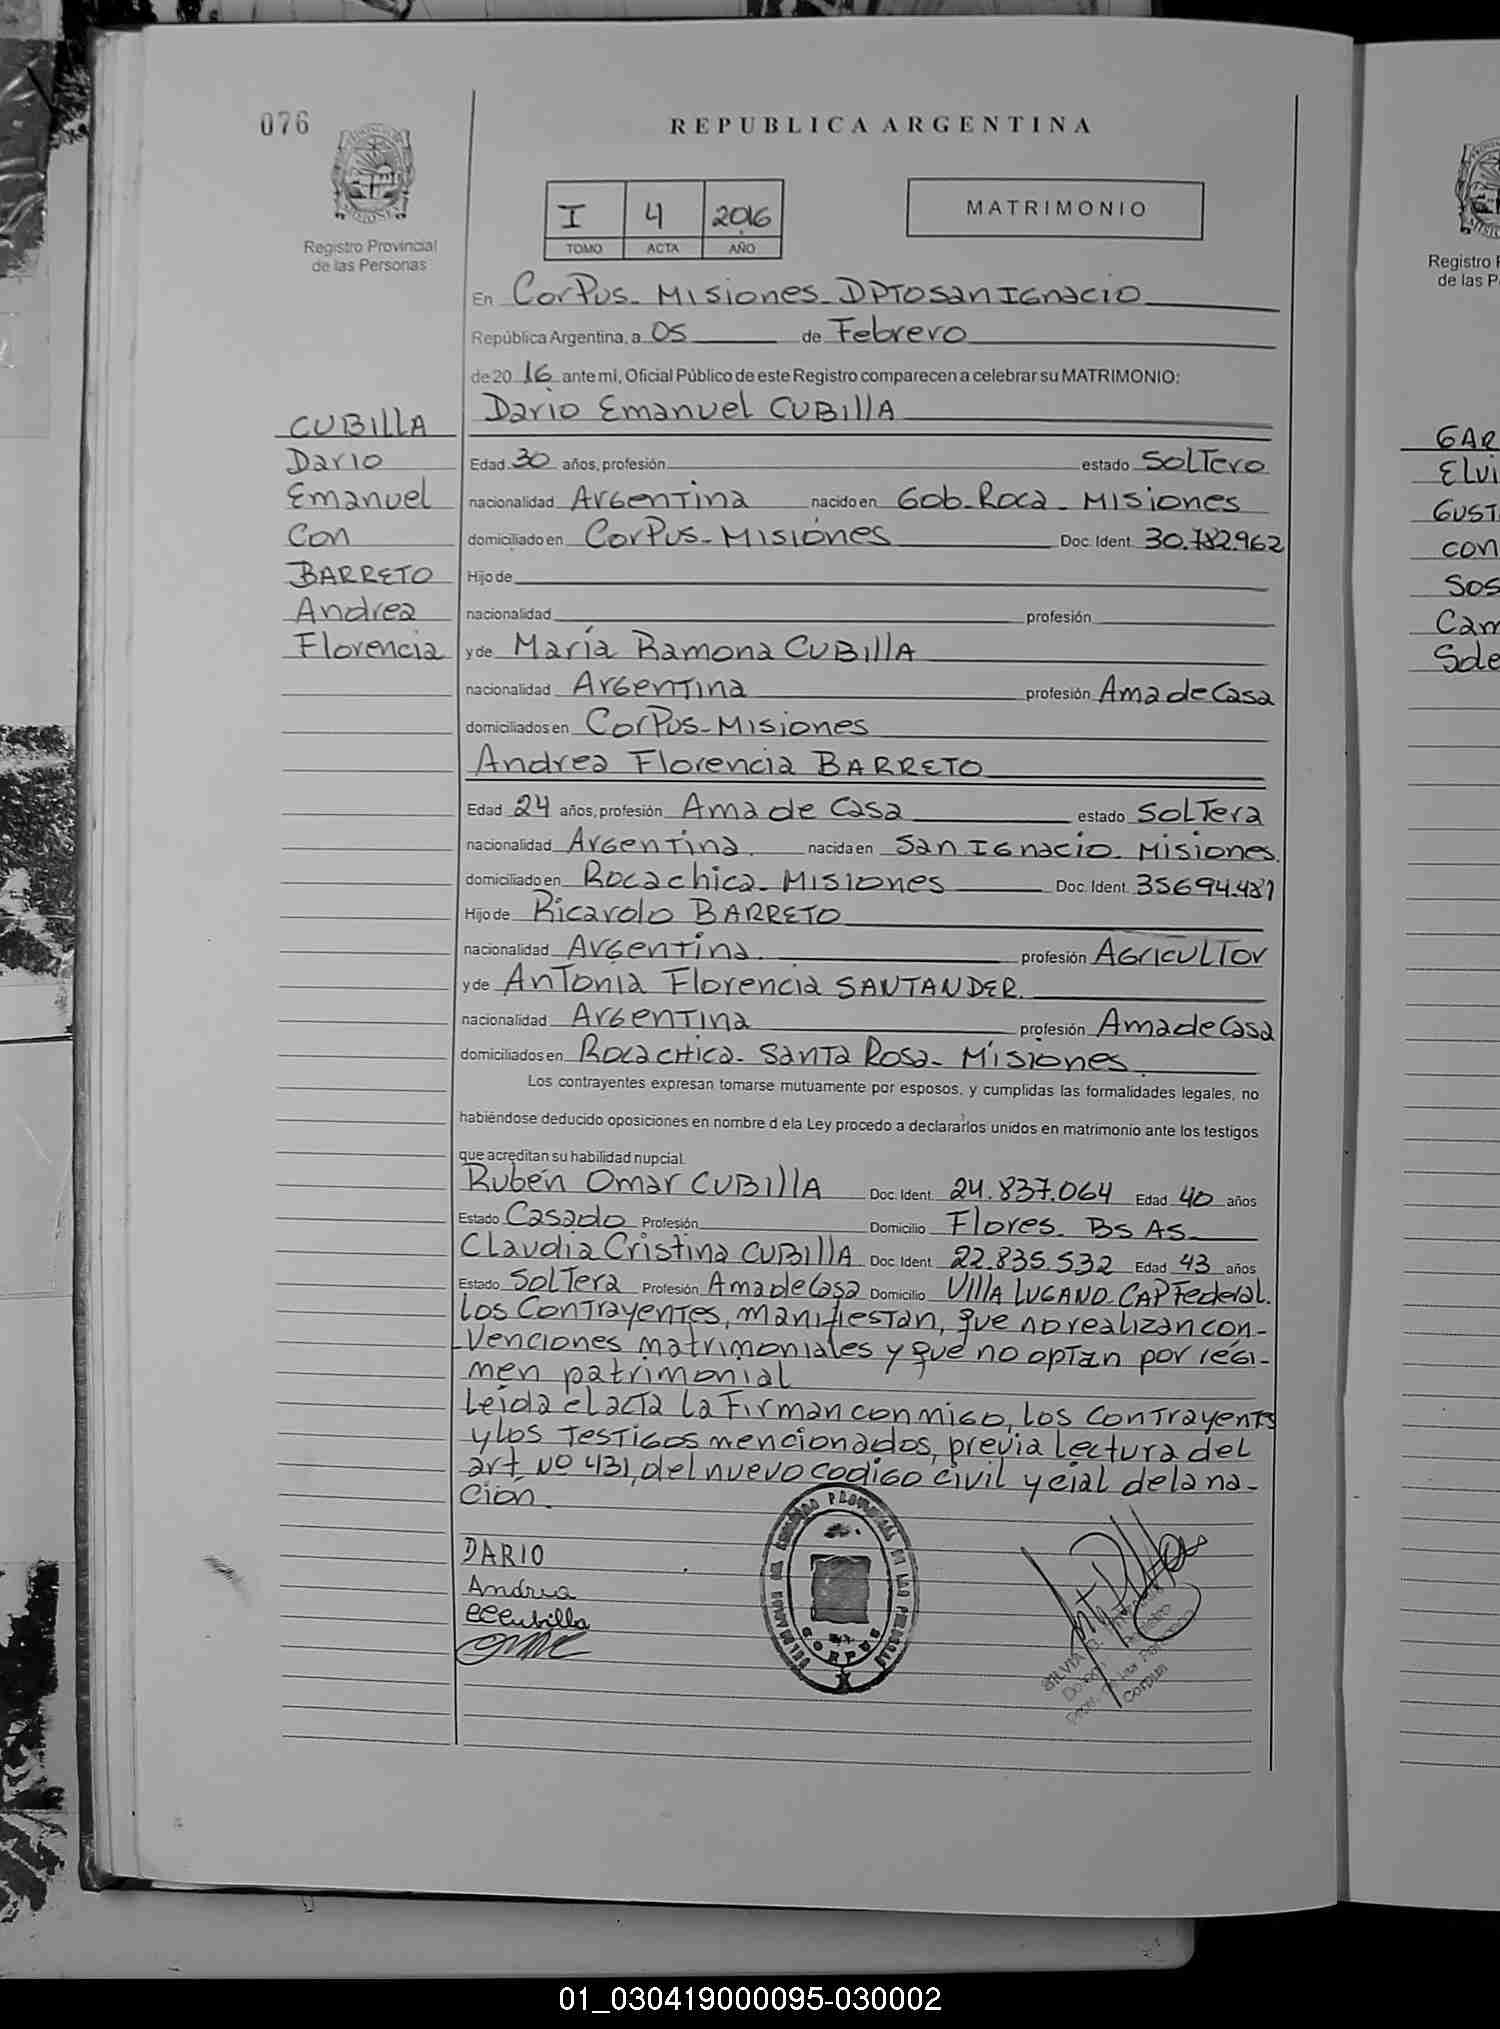 076
REPUBLICA ARGENTINA
Registro Provincial
de las Personas
I 4 2016
TOMO ACTA AÑO
MATRIMONIO
En Corpus - Misiones - DPTO San Ignacio
República Argentina, a 05 de Febrero
de 20 16 ante mí, Oficial Público de este Registro comparecen a celebrar su MATRIMONIO:
CUBILLA
Dario
Emanuel
Con
BARRETO
Andrea
Florencia
Dario Emanuel CUBILLA
Edad 30 años, profesión estado Soltero
nacionalidad Argentina nacido en Gob. Roca - Misiones
domiciliado en Corpus - Misiones Doc. Ident. 30.782.962
Hijo de
nacionalidad profesión
y de María Ramona CUBILLA
nacionalidad Argentina profesión Ama de Casa
domiciliados en Corpus - Misiones
Andrea Florencia BARRETO
Edad 24 años, profesión Ama de Casa estado Soltera
nacionalidad Argentina nacida en San Ignacio - Misiones.
domiciliado en Roca chica - Misiones Doc. Ident. 35694.481
Hijo de Ricardo BARRETO
nacionalidad Argentina profesión AGRICULTOR
y de Antonia Florencia SANTANDER.
nacionalidad Argentina profesión Ama de Casa
domiciliados en Roca chica - Santa Rosa - Misiones.
Los contrayentes expresan tomarse mutuamente por esposos, y cumplidas las formalidades legales, no
habiéndose deducido oposiciones en nombre d ela Ley procedo a declararlos unidos en matrimonio ante los testigos
que acreditan su habilidad nupcial.
Rubén Omar CUBILLA Doc. Ident. 24.837.064 Edad 40 años
Estado Casado Profesión Domicilio Flores - Bs As.
Claudia Cristina CUBILLA Doc. Ident. 22.835.532 Edad 43 años
Estado Soltera Profesión Ama de Casa Domicilio Villa Lugano - Cap Federal.
Los Contrayentes, manifiestan, que no realizan con-
venciones matrimoniales y que no optan por regi-
men patrimonial
Leída el acta la firman conmigo, los contrayents
y los testigos mencionados, previa lectura del
art Nº 431, del nuevo codigo civil y cial de la na-
ción.
DARIO
Andrea
CCCubilla
CORPUS
Registro P
de las P
GAR
Elvi
GUST
con
Sos
Cam
Sole
01_030419000095-030002